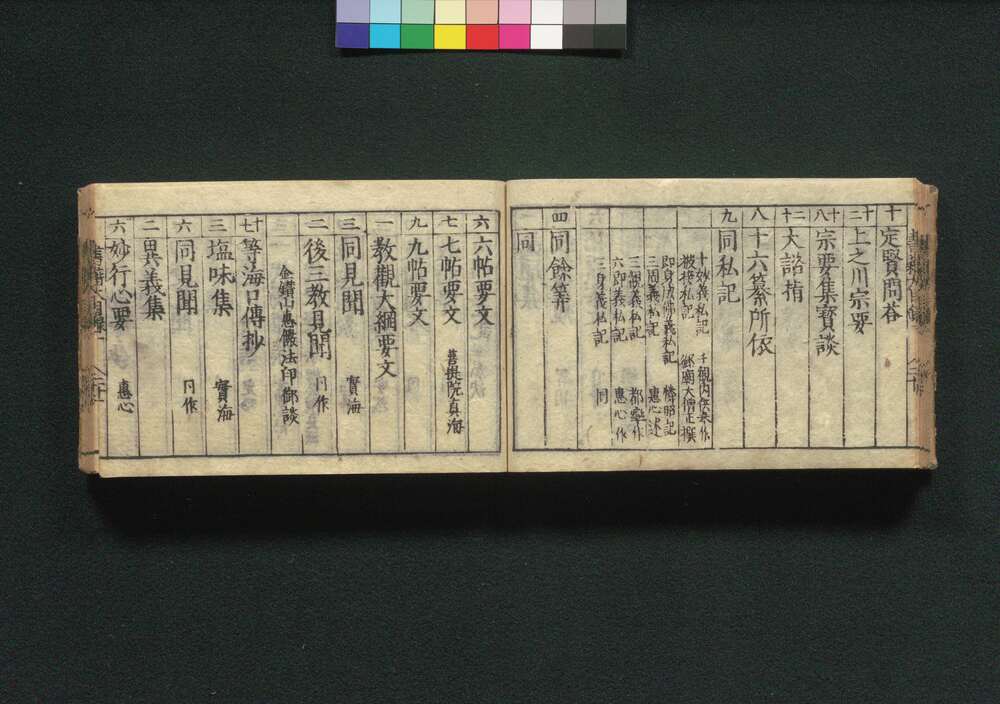 十 定賢問荅
二十 上之川宗要
十八 宗要集寳談
二十 大諮揩
八 十六纂所依
九 同私記
十妙義私記 千観内供奉作
被接私記 御廟大僧正撰
即身成佛義私記 㮶昭記
三周義私記 惠心述
三観義私記 都率作
六即義私記 惠心作
三身義私記 同
四 同餘筭
二 同
六 六帖要文
七 七帖要文 菩提院真海
九 九帖要文
一 教觀大綱要文
三 同見聞 實海
二 後三教見聞 同作
金鑚山惠儼法印御談
十七 等海口傳抄
三 塩味集 實海
六 同見聞 同作
二 異義集
六 妙行心要 惠心